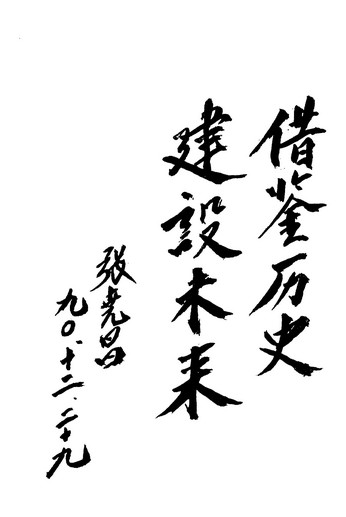 借鉴历史
建設未来
张尧昌
九〇.十二.二十九